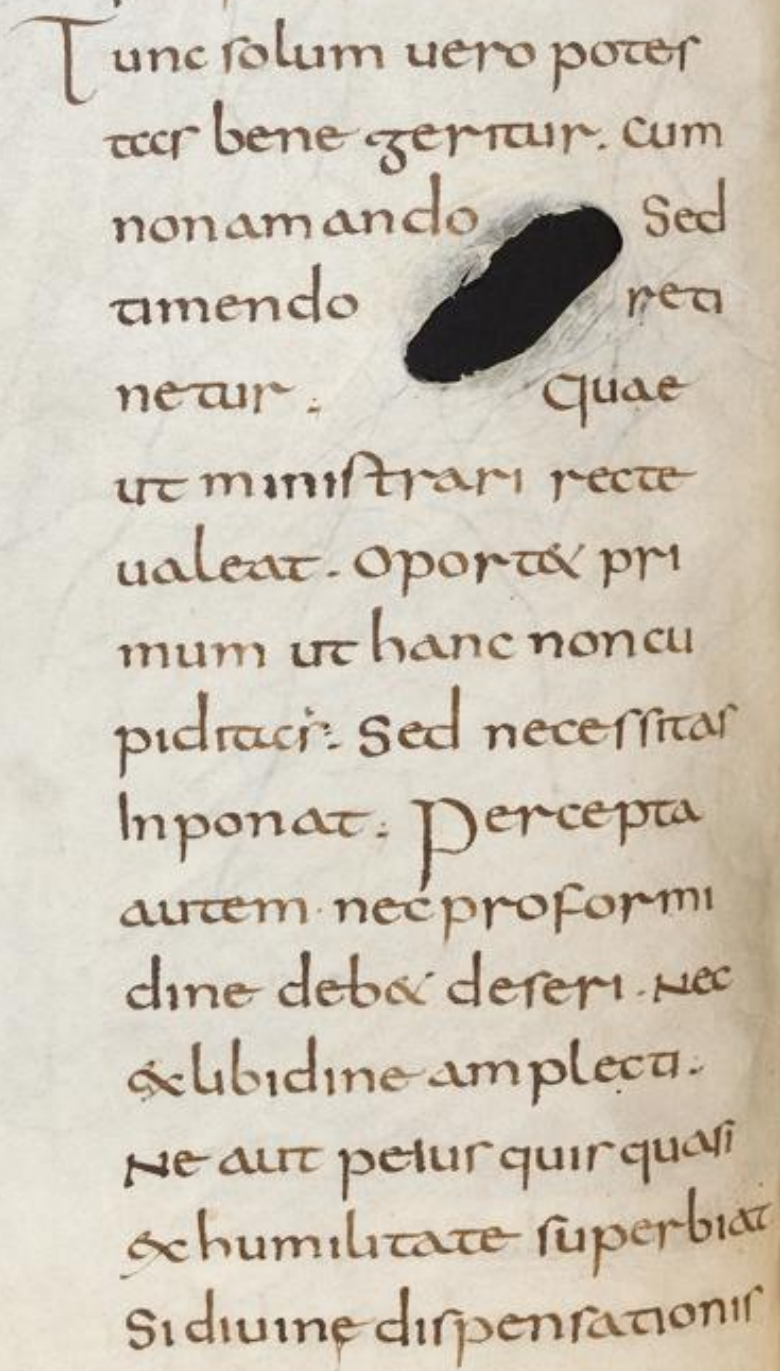 Tunc solum uero potes
tas bene geritur. Cum
non amando Sed
timendo reti
netur; Quae
ut ministrari recte
ualeat. Oportet pri
mum ut hanc non cu
piditas; Sed necessitas
Inponat; Percepta
autem nec pro formi
dine debet deseri. Nec
ex libidine amplecti;
Ne aut peius quis quasi
ex humilitate superbiat
Si diuinę dispensationis